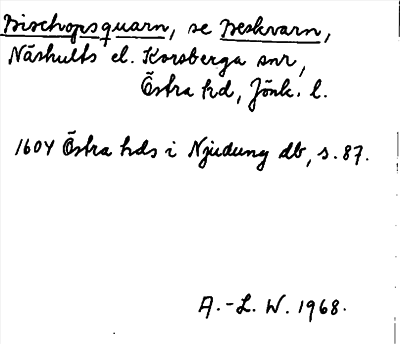 Bischopsquarn, se Beskvarn,
Näshults el. Korsberga snr,
Östra hd, Jönk. l.
1604 Östra hds i Njudung db, s. 87.
A.-L. W. 1968.